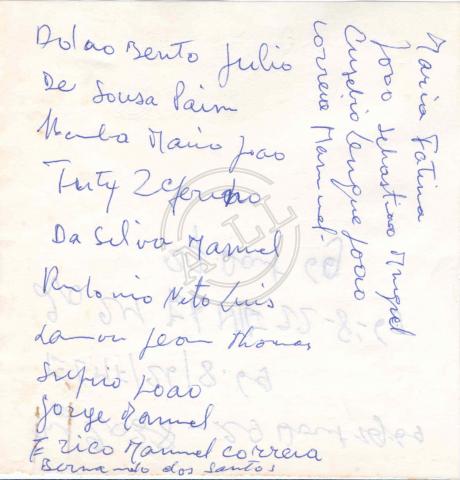 Dolao Bento Julio
De Sousa Paim
Mamba Mario Joao
Tuty Zeferino
Da Silva Manuel
Antonio Neto Luis
Jean Thomas
Joao
Jorge Manuel
Erico Manuel Correia
Bernardo dos Santos
Maria Fatima
Joao Sebastiao Miguel
Eusebio Lengue Joao
Correia Manuel
ALL